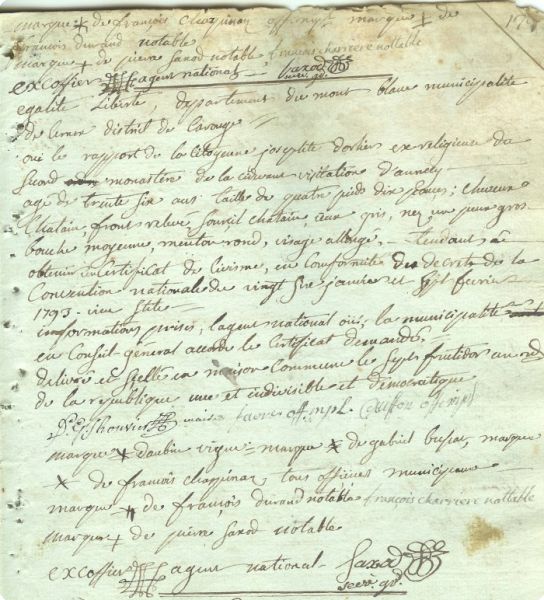 marque x de françois chappinaz officinyl marque + de
françois durand notable 175
marque + de pierre saxod notable francois charriere nottable
excoffier agent national saxod secr. gr.
egalité Liberté, departement du mont blanc municipalité
de Cernex district de Carouge
oui le rapport de la Citoyenne josephte Dorlier ex religieuse du
second monastère de la cidevant visitation d'annecy
agé de trente six ans taille de quatre pieds dix pouces; cheveux
Chatain front releve sourcil chatain yeux gris, nez un peux gros
bouche moyenne, menton rond, visage allongé, tendant à
obtenir un Certificat de Civisme, en Conformité du decrets de la
Convention nationale de vingt six janvier et sept fevrier
1793 vieux stile
informations prises, l'agent national oui, la municipalité
en Conseil général accorde le Certificat demandé,
delivré et scellé en maison Commune le sept fructidor an
de la republique une et indivisible et democratique
maire favre off. mpl.
marque + daubin vigne = marque x de gabriel , marque
x de françois chappinaz, tous officiers municipaux
marque x de françois durand notable françois charriere nottable
marque + de pierre saxod notable
excoffier agent national saxod
secr. gr.